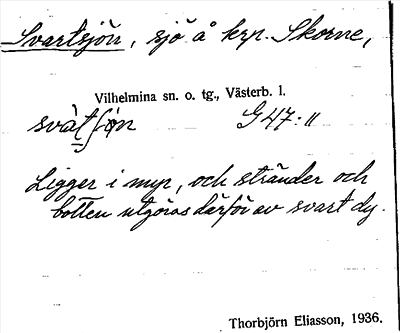 Svartsjön, sjö å krp. Skorne,
Vilhelmina sn. o. tg., Västerb. l.
G 47: 11
Ligger i myr, och stränder och
botten utgöras därför av svart dy.
Thorbjörn Eliasson, 1936.